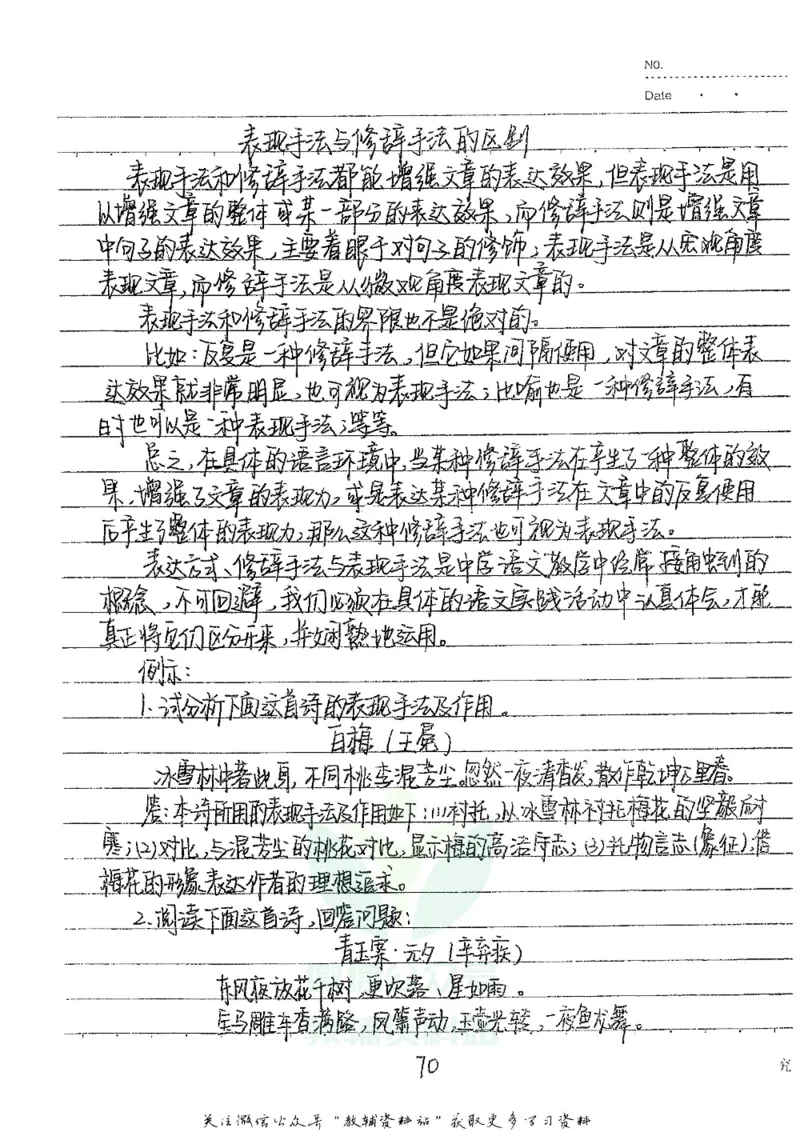 No.
Date
表现手法与修辞手法的区别
表现手法和修辞手法都能增强文章的表达效果,但表现手法是用
以增强文章的整体或某一部分的表达效果,而修辞手法则是增强文章
中句子的表达效果,主要着眼于对句子的修饰;表现手法是从宏观角度
表现文章,而修辞手法是从微观角度表现文章的。
表现手法和修辞手法的界限也不是绝对的。
比如:反复是一种修辞手法,但它如果间隔使用,对文章的整体表
达效果就非常明显,也可视为表现手法;比喻也是一种修辞手法,有
时也可以是一种表现手法;等等。
总之,在具体的语言环境中,当某种修辞手法在产生了一种整体的效
果,增强了文章的表现力,或是表达某种修辞手法在文章中的反复使用
后产生了整体的表现力,那么这种修辞手法也可视为表现手法。
表达方式、修辞手法与表现手法是中学语文教学中经常接触到的
概念,不可回避,我们必须在具体的语文实践活动中认真体会,才能
真正将它们区分开来,并娴熟地运用。
例示:
1.试分析下面这首诗的表现手法及作用。
白梅(王冕)
冰雪林中著此身,不同桃李混芳尘。忽然一夜清香发,散作乾坤万里春。
答:本诗所用的表现手法及作用如下:(1)衬托,从冰雪林衬托梅花的坚毅耐
寒;(2)对比,与混芳尘的桃花对比,显示梅的高洁守志;(3)托物言志(象征),借
梅花的形象表达作者的理想追求。
2.阅读下面这首诗,回答问题:
青玉案·元夕(辛弃疾)
东风夜放花千树,更吹落、星如雨。
宝马雕车香满路,风箫声动,玉壶光转,一夜鱼龙舞。
70
关注微信公众号"教辅资料站"获取更多学习资料